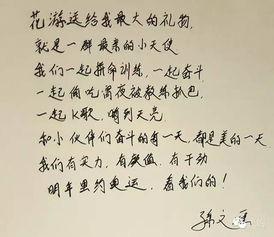 花游送给我最大的礼物,
就是一群最亲的小天使
我们一起拼命训练,一起奋斗
一起偷吃宵夜被教练扒巴
一起K歌,唱到天亮
和小伙伴们奋斗的每一天,都是美的一天
我们有实力,有颜值,有干劲
明年里约奥运,看我们的!
孙文雁